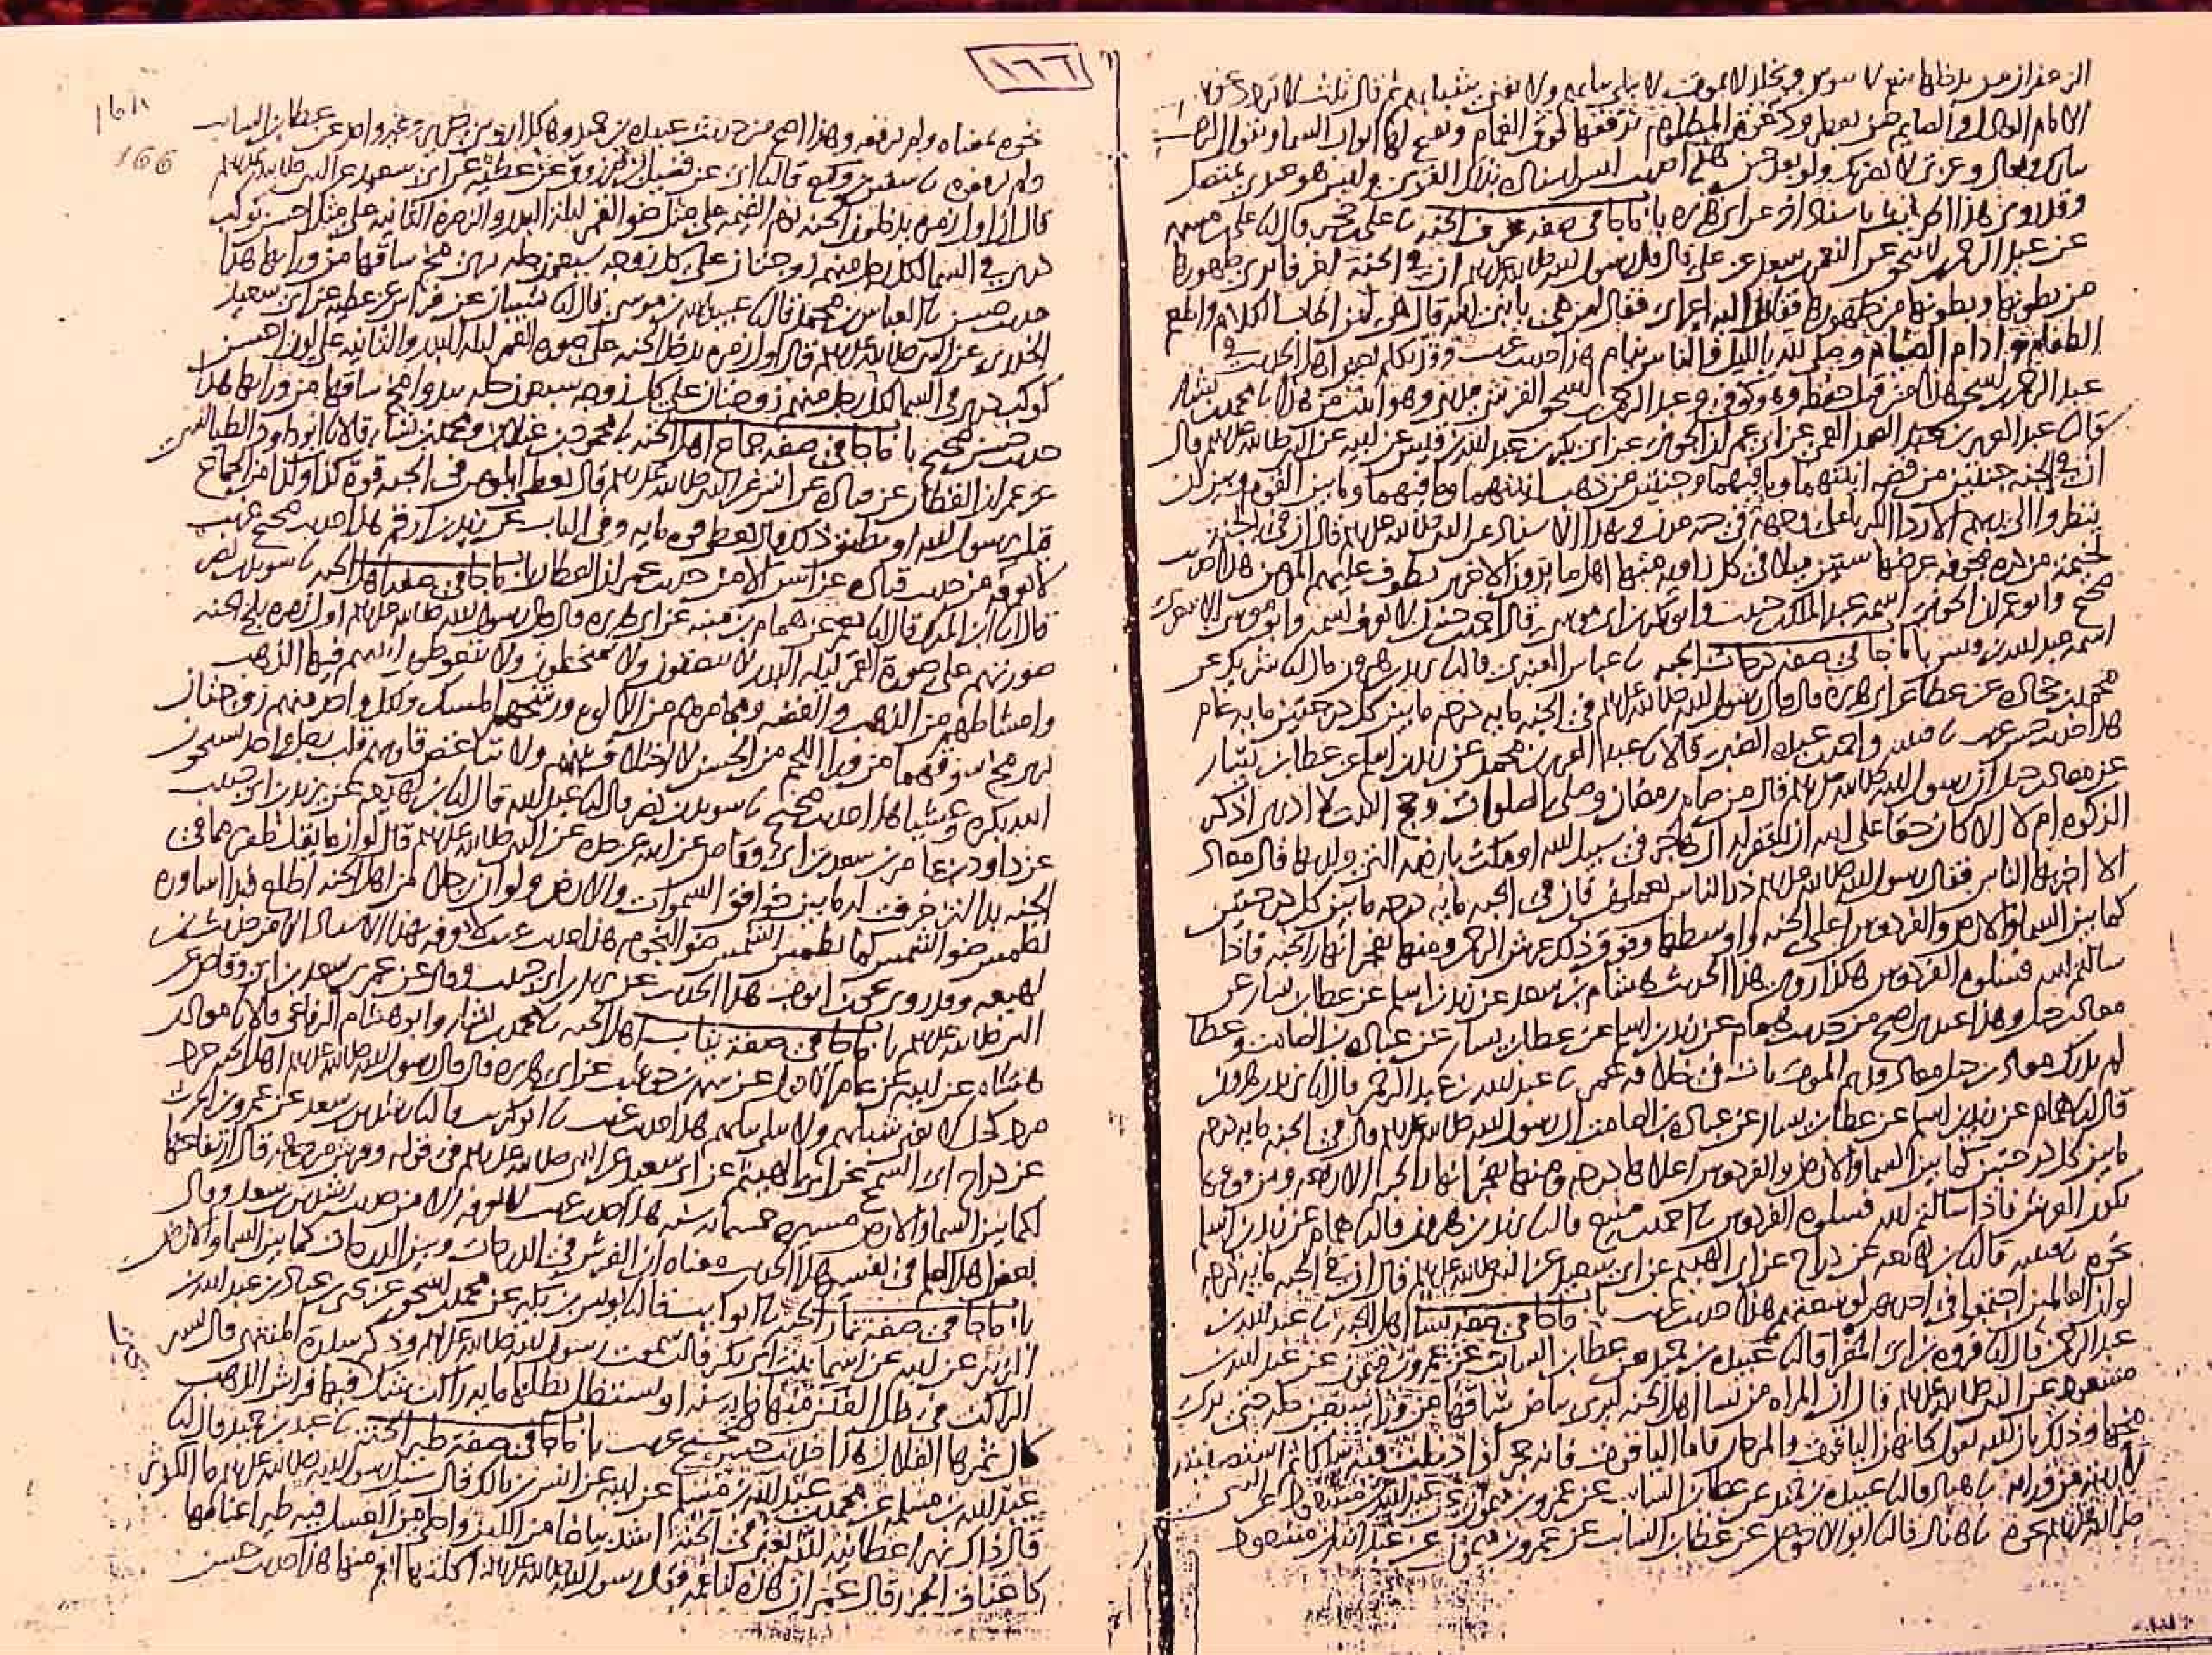 الزعفران من يدخلها ينعم لا يبوس ويخلد لا يموت لا يبلى ثيابهم ولا يفنى شبابهم ثم قال ثلث لا ترد دعوتهم
الامام العادل والصايم حين يفطر ودعوة المظلوم ترفعها فوق الغمام وتفتح لها ابواب السما ويقول الرب
تبارك وتعالى وعزتي لانصرنك ولو بعد حين هذا حديث ليس اسناده بذلك القوي وليس هو عندي بمتصل
وقد روي هذا الحديث باسناد اخر عن ابي هريرة باب ما جا في صفة غرف الجنة نا علي بن حجر قال نا علي بن مسهر
عن عبد الرحمن بن اسحق عن النعمن بن سعد عن علي قال قال رسول الله صلى الله عليه وسلم ان في الجنة لغرفا يرى ظهورها
من بطونها وبطونها من ظهورها فقام اليه اعرابي فقال لمن هي يا نبي الله قال هي لمن اطاب الكلام واطعم
الطعام وادام الصيام وصلى لله بالليل والناس نيام هذا حديث غريب وقد تكلم بعض اهل الحديث في
عبد الرحمن بن اسحق هذا من قبل حفظه وهو كوفي وعبد الرحمن بن اسحق القرشي مديني وهو اثبت من هذا نا محمد بن بشار
قال نا عبد العزيز بن عبد الصمد العمي عن ابي عمران الجوني عن ابي بكر بن عبد الله بن قيس عن ابيه عن النبي صلى الله عليه وسلم قال
ان في الجنة جنتين من فضة انيتهما وما فيهما وجنتين من ذهب انيتهما وما فيهما وما بين القوم وبين ان
ينظروا الى ربهم الا ردا الكبريا على وجهه في جنة عدن وبهذا الاسناد عن النبي صلى الله عليه وسلم قال ان في الجنة
لخيمة من درة مجوفة عرضها ستون ميلا في كل زاوية منها اهل ما يرون الاخرين يطوف عليهم المومن هذا حديث
صحيح وابو عمران الجوني اسمه عبد الملك بن حبيب وابو بكر بن ابي موسى قال احمد بن حنبل لا يعرف اسمه وابو موسى الاشعري
اسمه عبد الله بن قيس باب ما جا في صفة درجات الجنة نا عباس العنبري قال نا يزيد بن هرون قال نا شريك عن
محمد بن جحادة عن عطا عن ابي هريرة قال قال رسول الله صلى الله عليه وسلم في الجنة ماية درجة ما بين كل درجتين ماية عام
هذا حديث حسن غريب نا قتيبة واحمد بن عبدة الضبي قالا نا عبد العزيز بن محمد عن زيد بن اسلم عن عطا بن يسار
عن معاذ بن جبل ان رسول الله صلى الله عليه وسلم قال من صام رمضان وصلى الصلوات وحج البيت لا ادري اذكر
الزكوة ام لا الا كان حقا على الله ان يغفر له ان هاجر في سبيل الله او مكث بارضه التي ولد بها قال معاذ
الا اخبر بها الناس فقال رسول الله صلى الله عليه وسلم ذر الناس يعملون فان في الجنة ماية درجة ما بين كل درجتين
كما بين السما والارض والفردوس اعلى الجنة واوسطها وفوق ذلك عرش الرحمن ومنها تفجر انهار الجنة فاذا
سالتم الله فسلوه الفردوس هكذا روي هذا الحديث هشام بن سعد عن زيد بن اسلم عن عطا بن يسار عن
معاذ بن جبل وهذا عندي اصح من حديث همام عن زيد بن اسلم عن عطا بن يسار عن عبادة بن الصامت وعطا
لم يدرك معاذ بن جبل معاذ قديم الموت مات في خلافة عمر نا عبد الله بن عبد الرحمن قال نا يزيد بن هرون
قال نا همام عن زيد بن اسلم عن عطا بن يسار عن عبادة بن الصامت ان رسول الله صلى الله عليه وسلم قال في الجنة ماية درجة
ما بين كل درجتين كما بين السما والارض والفردوس اعلاها درجة ومنها تفجر انهار الجنة الاربعة ومن فوقها
يكون العرش فاذا سالتم الله فسلوه الفردوس نا احمد بن منيع قال نا يزيد بن هرون قال نا همام عن زيد بن اسلم
نحوه نا قتيبة قال نا ابن لهيعة عن دراج عن ابي الهيثم عن ابي سعيد عن النبي صلى الله عليه وسلم قال ان في الجنة ماية درجة
لو ان العالمين اجتمعوا في احديهن لوسعتهم هذا حديث غريب باب ما جا في صفة نسا اهل الجنة نا عبد الله بن
عبد الرحمن قال نا فروة بن ابي المغرا قال نا عبيدة بن حميد عن عطا بن السايب عن عمرو بن ميمون عن عبد الله بن
مسعود عن النبي صلى الله عليه وسلم قال ان المراة من نسا اهل الجنة ليرى بياض ساقها من ورا سبعين حلة حتى يرى
مخها وذلك بان الله يقول كانهن الياقوت والمرجان فاما الياقوت فانه حجر لو ادخلت فيه سلكا ثم استصفيته
لاريته من ورايه نا هناد قال نا عبيدة بن حميد عن عطا بن السايب عن عمرو بن ميمون عن عبد الله بن مسعود عن النبي
صلى الله عليه وسلم نحوه نا هناد قال نا ابو الاحوص عن عطا بن السايب عن عمرو بن ميمون عن عبد الله بن مسعود
١٦٦
166
نحوه بمعناه ولم يرفعه وهذا اصح من حديث عبيدة بن حميد وهكذا روى جرير وغير واحد عن عطا بن السايب
ولم يرفعوه نا سفين بن وكيع قال نا ابي عن فضيل بن مرزوق عن عطية عن ابي سعيد عن النبي صلى الله عليه وسلم
قال ان اول زمرة يدخلون الجنة يوم القيمة على مثل ضو القمر ليلة البدر والزمرة الثانية على مثل احسن كوكب
دري في السما لكل رجل منهم زوجتان على كل زوجة سبعون حلة يرى مخ ساقها من ورايها هذا
حديث حسن نا العباس بن محمد قال نا عبيد الله بن موسى قال نا شيبان عن فراس عن عطية عن ابي سعيد
الخدري عن النبي صلى الله عليه وسلم قال اول زمرة تدخل الجنة على صورة القمر ليلة البدر والثانية على لون احسن
كوكب دري في السما لكل رجل منهم زوجتان على كل زوجة سبعون حلة يبدو مخ ساقها من ورايها هذا
حديث حسن صحيح باب ما جا في صفة جماع اهل الجنة نا محمود بن غيلان ومحمد بن بشار قالا نا ابو داود الطيالسي
عن عمران القطان عن قتادة عن انس عن النبي صلى الله عليه وسلم قال يعطى المومن في الجنة قوة كذا وكذا من الجماع
قيل يا رسول الله او يطيق ذلك قال يعطى قوة ماية وفي الباب عن زيد بن ارقم هذا حديث صحيح غريب
لا نعرفه من حديث قتادة عن انس الا من حديث عمران القطان باب ما جا في صفة اهل الجنة نا سويد بن نصر
قال نا ابن المبرك قال نا معمر عن همام بن منبه عن ابي هريرة قال قال رسول الله صلى الله عليه وسلم اول زمرة تلج الجنة
صورتهم على صورة القمر ليلة البدر لا يبصقون ولا يمتخطون ولا يتغوطون انيتهم فيها الذهب
وامشاطهم من الذهب والفضة ومجامرهم من الالوة ورشحهم المسك ولكل واحد منهم زوجتان
يرى مخ سوقهما من ورا اللحم من الحسن لا اختلاف بينهم ولا تباغض قلوبهم قلب رجل واحد يسبحون
الله بكرة وعشيا هذا حديث صحيح نا سويد بن نصر قال نا عبد الله قال نا ابن لهيعة عن يزيد بن ابي حبيب
عن داود بن عامر بن سعد بن ابي وقاص عن ابيه عن جده عن النبي صلى الله عليه وسلم قال لو ان ما يقل ظفر مما في
الجنة بدا لتزخرفت له ما بين خوافق السموات والارض ولو ان رجلا من اهل الجنة اطلع فبدا اساوره
لطمس ضو الشمس كما تطمس الشمس ضو النجوم هذا حديث غريب لا نعرفه بهذا الاسناد الا من حديث ابن
لهيعة وقد روى يحيى بن ايوب هذا الحديث عن يزيد بن ابي حبيب وقال عن عمر بن سعد بن ابي وقاص عن
النبي صلى الله عليه وسلم باب ما جا في صفة ثياب اهل الجنة نا محمد بن بشار وابو هشام الرفاعي قالا نا معاذ بن
هشام عن ابيه عن عامر الاحول عن شهر بن حوشب عن ابي هريرة قال قال رسول الله صلى الله عليه وسلم اهل الجنة جرد
مرد كحل لا يفنى شبابهم ولا تبلى ثيابهم هذا حديث غريب نا ابو كريب قال نا رشدين بن سعد عن عمرو بن الحرث
عن دراج ابي السمح عن ابي الهيثم عن ابي سعيد عن النبي صلى الله عليه وسلم في قوله وفرش مرفوعة قال ارتفاعها
لكما بين السما والارض مسيرة خمسماية سنة هذا حديث غريب لا نعرفه الا من حديث رشدين بن سعد وقال
بعض اهل العلم في تفسير هذا الحديث معناه ان الفرش في الدرجات وبين الدرجات كما بين السما والارض
باب ما جا في صفة ثمار الجنة نا ابو كريب قال نا يونس بن بكير عن محمد بن اسحق عن يحيى بن عباد بن عبد الله بن
الزبير عن ابيه عن اسما بنت ابي بكر قالت سمعت رسول الله صلى الله عليه وسلم وذكر سدرة المنتهى قال يسير
الراكب في ظل الفنن منها ماية سنة او يستظل بظلها ماية راكب شك يحيى فيها فراش الذهب
كان ثمرها القلال هذا حديث حسن صحيح غريب باب ما جا في صفة طير الجنة نا عبد بن حميد قال نا
عبد الله بن مسلمة عن محمد بن عبد الله بن مسلم عن ابيه عن انس بن مالك قال سيل رسول الله صلى الله عليه وسلم ما الكوثر
قال ذاك نهر اعطانيه الله يعني في الجنة اشد بياضا من اللبن واحلى من العسل فيه طير اعناقها
كاعناق الجزر قال عمر ان هذه لناعمة فقال رسول الله صلى الله عليه وسلم اكلتها انعم منها هذا حديث حسن